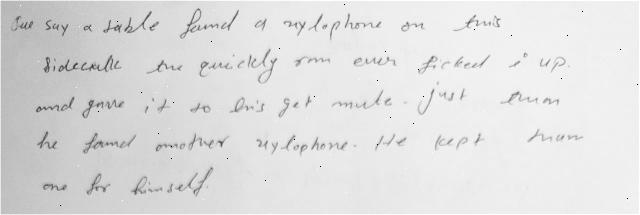 One say a sable found a xylophone on this
Sidewalk the quickly ran over picked i up.
and gave it to his get mute. just than
he found another xylophone. He kept than
one for himself.